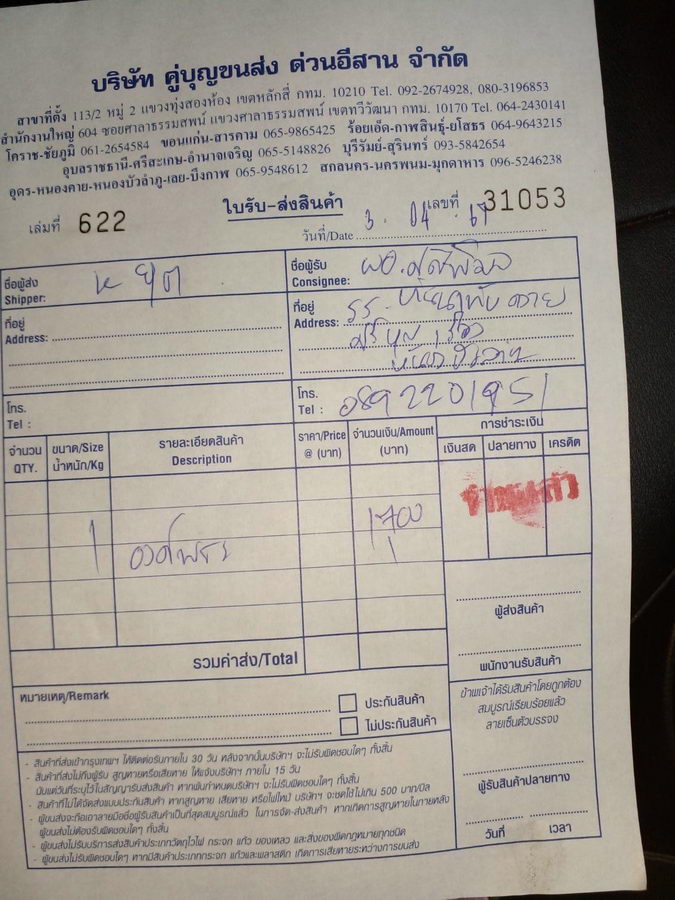 บริษัท คู่บุญขนส่ง ด่วนอีสาน จำกัด
สาขาที่ตั้ง 113/2 หมู่ 2 แขวงทุ่งสองห้อง เขตหลักสี่ กทม. 10210 Tel. 092-2674928, 080-3196853
สำนักงานใหญ่ 604 ซอยศาลาธรรมสพน์ แขวงศาลาธรรมสพน์ เขตทวีวัฒนา กทม. 10170 Tel. 064-2430141
โคราช-ชัยภูมิ 061-2654584 ขอนแก่น-สารคาม 065-9865425 ร้อยเอ็ด-กาฬสินธุ์-ยโสธร 064-9643215
อุบลราชธานี-ศรีสะเกษ-อำนาจเจริญ 065-5148826 บุรีรัมย์-สุรินทร์ 093-5842654
อุดร-หนองคาย-หนองบัวลำภู-เลย-บึงกาฬ 065-9548612 สกลนคร-นครพนม-มุกดาหาร 096-5246238
เล่มที่ 622 ใบรับ-ส่งสินค้า เลขที่ 31053
วันที่/Date 3 04 67
ชื่อผู้ส่ง
Shipper:
ชื่อผู้รับ
Consignee: ผอ.
ที่อยู่
Address:
ที่อยู่
Address: รร.
ศรีบุญเรือง
หนองบัวลำภู
โทร.
Tel :
โทร.
Tel : 0892201951
จำนวน QTY.
ขนาด/Size น้ำหนัก/Kg
รายละเอียดสินค้า Description
ราคา/Price @ (บาท)
จำนวนเงิน/Amount (บาท)
การชำระเงิน
เงินสด ปลายทาง เครดิต
1 องค์พระ 1700
รวมค่าส่ง/Total
ผู้ส่งสินค้า
พนักงานรับสินค้า
หมายเหตุ/Remark
ประกันสินค้า
ไม่ประกันสินค้า
ข้าพเจ้าได้รับสินค้าโดยถูกต้อง
สมบูรณ์เรียบร้อยแล้ว
ลายเซ็นตัวบรรจง
ผู้รับสินค้าปลายทาง
วันที่ เวลา
- สินค้าที่ส่งเข้ากรุงเทพฯ ให้ติดต่อรับภายใน 30 วัน หลังจากนั้นบริษัทฯ จะไม่รับผิดชอบใดๆ ทั้งสิ้น
- สินค้าที่ส่งไม่ถึงผู้รับ สูญหายหรือเสียหาย ให้แจ้งบริษัทฯ ภายใน 15 วัน
นับแต่วันที่ระบุไว้ในสัญญารับส่งสินค้า หากพ้นกำหนดบริษัทฯ จะไม่รับผิดชอบใดๆ ทั้งสิ้น
- สินค้าที่ไม่ได้จัดส่งแบบประกันสินค้า หากสูญหาย เสียหาย หรือไฟไหม้ บริษัทฯ จะชดใช้ไม่เกิน 500 บาท/บิล
- ผู้ขนส่งจะถือเอาลายมือชื่อผู้รับสินค้าเป็นที่สุดสมบูรณ์แล้ว ในการจัด-ส่งสินค้า หากเกิดการสูญหายในภายหลัง
ผู้ขนส่งไม่ต้องรับผิดชอบใดๆ ทั้งสิ้น
- ผู้ขนส่งไม่รับบริการส่งสินค้าประเภทวัตถุไวไฟ กระจก แก้ว ของเหลว และสิ่งของผิดกฎหมายทุกชนิด
- ผู้ขนส่งไม่รับผิดชอบใดๆ หากมีสินค้าประเภทกระจก แก้วและพลาสติก เกิดการเสียหายระหว่างการขนส่ง